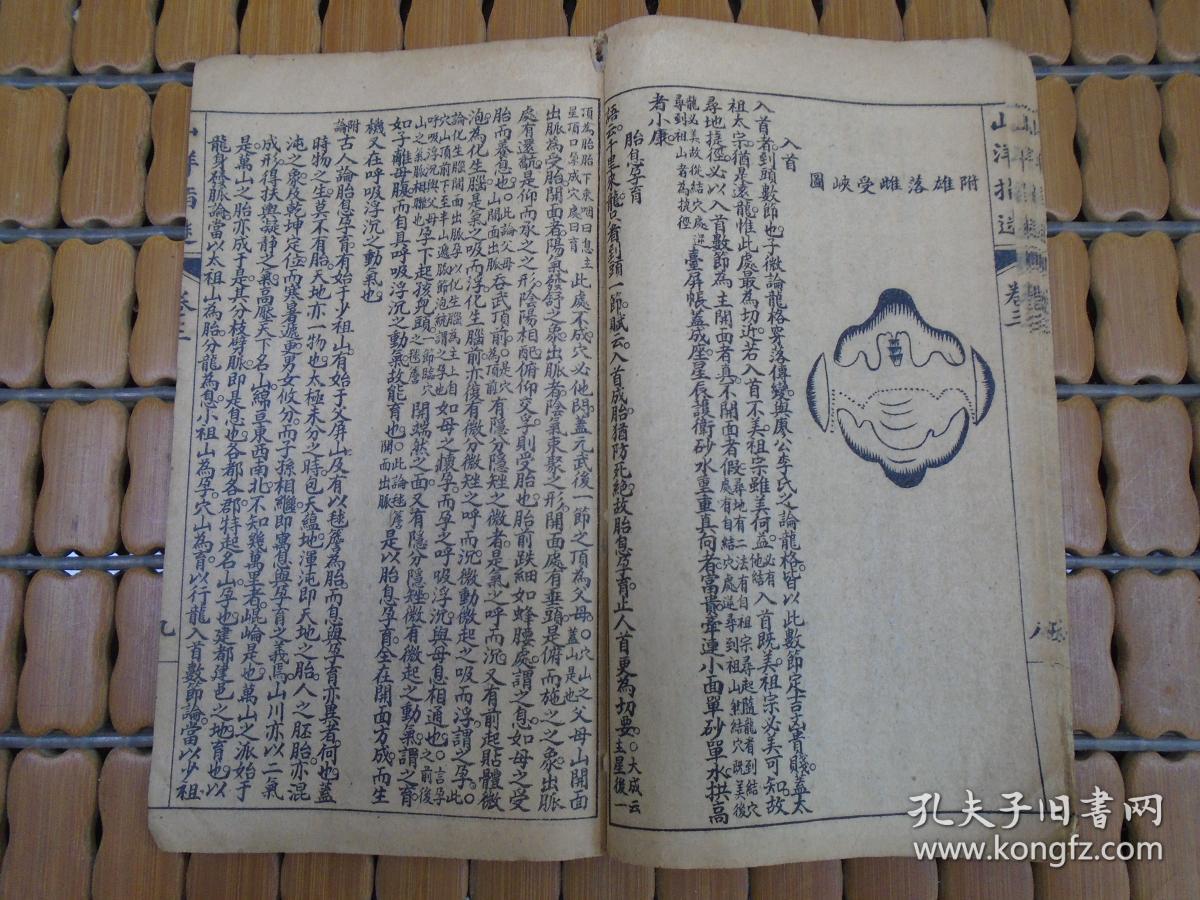 山洋指迷 卷三
附雄落雌受峽圖
入首
入首者到頭數節也子微論龍格穿落傳變與廖公李氏之論龍格皆以此數節定吉凶貴賤蓋太
祖太宗猶是遠龍惟此處最為切近若入首不美祖宗雖美何益必有他結入首既美祖宗必美可知故
尋地捷徑必以入首數節為主開面者真不開面者假尋地有二法有自祖宗尋起隨龍看到結穴處有自結穴處逆尋到祖山然結穴既美後
龍必美故從結穴處逆尋到祖山者為捷徑臺屏帳蓋成座星辰護衛砂水重重真向者富貴牽連小面單砂單水拱高
者小康
胎息孕育
語云千里來龍只看到頭一節賦云入首成胎猶防死絕故胎息孕育止入首更為切要大成云主星後一
頂為胎胎下束咽曰息主星頂曰孕成穴處曰育此處不成穴必他閃蓋元武後一節之頂為父母穴山之蓋山是也父母山開面
出脈為受胎開面者陽氣發舒之象出脈者陰氣束聚之形開面處有垂頭是俯而施之之象出脈
處有還氈是仰而承之之形陰陽相配俯仰交孚則受胎也胎前跌細如蜂腰處謂之息如母之受
胎而養息也此論父母山開面出脈吞武頂前是穴為頂前有隱分隱矬之微者是氣之呼而沉又有前起貼體微
泡為化生腦是氣之吸而浮化生腦前亦復有微分微矬之呼而沉微動微起之吸而浮謂之孕此
論化生腦開面出脈孕以化生腦為主上自穴山頂前下至半山邊脈節泡統謂之孕也如母之懷孕而孕之呼吸浮沉與母息相通也言孕
呼吸浮沉與父母山之氣脈相聯也孕下起孩兒頭一節臨穴之毬簷開端然之面又有隱分隱矬微有微起之動氣謂之育之前後
如子離母腹而自具呼吸浮沉之動氣故能育也此論毬簷開面出脈是以胎息孕育全在開面方成而生
機又在呼吸浮沉之動氣也
附論古人論胎息孕育有始于少祖山有始于父屏山及有以毬簷為胎而息與孕育亦異者何也蓋
時物之生莫不有胎天地亦一物也太極未分之時包天蘊地渾沌即天地之胎人之胚胎亦混
沌之象及乾坤定位而寒暑遞更男女攸分而子孫相繼即寓息與孕育之義焉山川亦以二氣
成形得扶輿凝靜之氣高壓天下名山綿亘東西南北不知幾萬里者崑崙是也萬山之派始于
是萬山之胎亦成于是其分枝劈脈即是息也各都各郡特起名山孕也建都建邑之地育也以
龍身發脈論當以太祖山為胎分龍為息小祖山為孕穴山為育以行龍入首數節論當以少祖
山洋指迷 卷三
九
八
孔夫子旧书网
www.kongfz.com